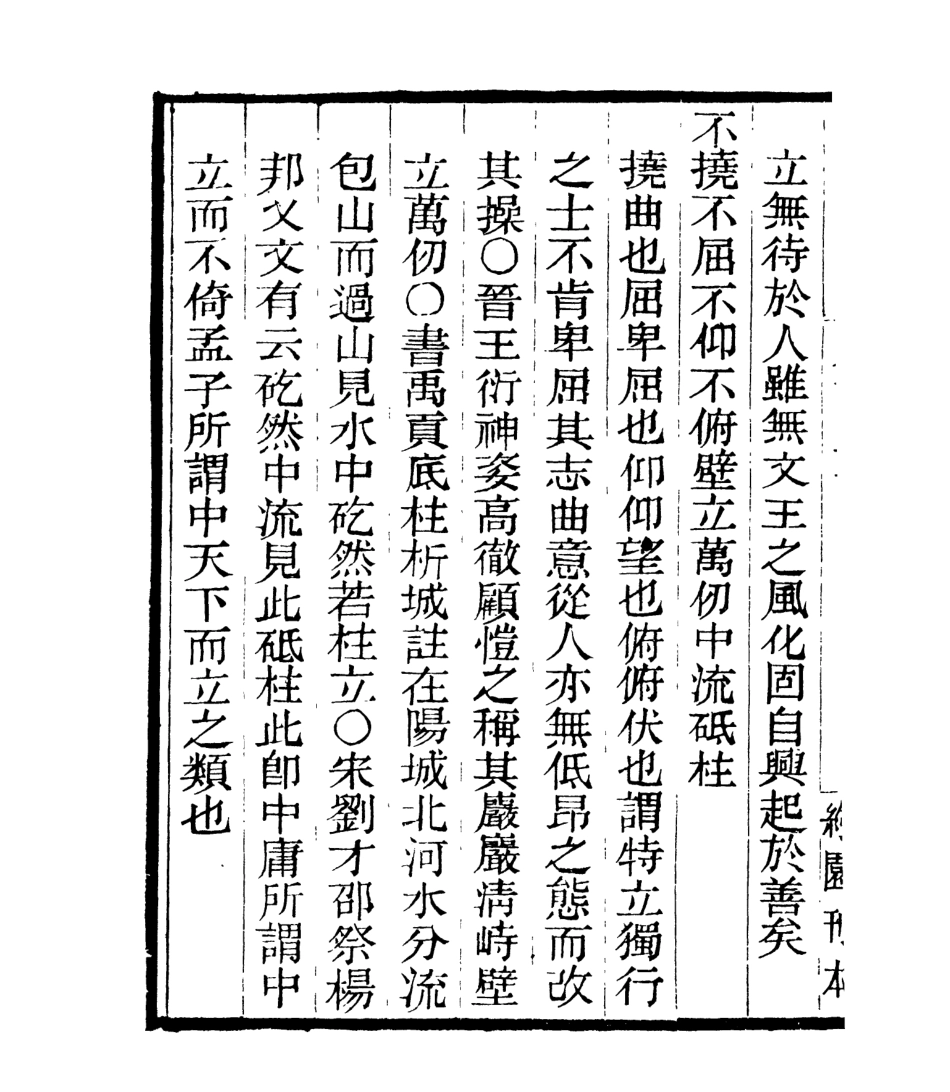 立無待於人雖無文王之風化固自興起於善矣
不撓不屈不仰不俯壁立萬仞中流砥柱
撓曲也屈卑屈也仰仰望也俯俯伏也謂特立獨行
之士不肯卑屈其志曲意從人亦無低昂之態而改
其操〇晉王衍神姿高徹顧愷之稱其巖巖清峙壁
立萬仞〇書禹貢底柱析城註在陽城北河水分流
包山而過山見水中矻然若柱立〇宋劉才邵祭楊
邦乂文有云矻然中流見此砥柱此卽中庸所謂中
立而不倚孟子所謂中天下而立之類也
園刊本